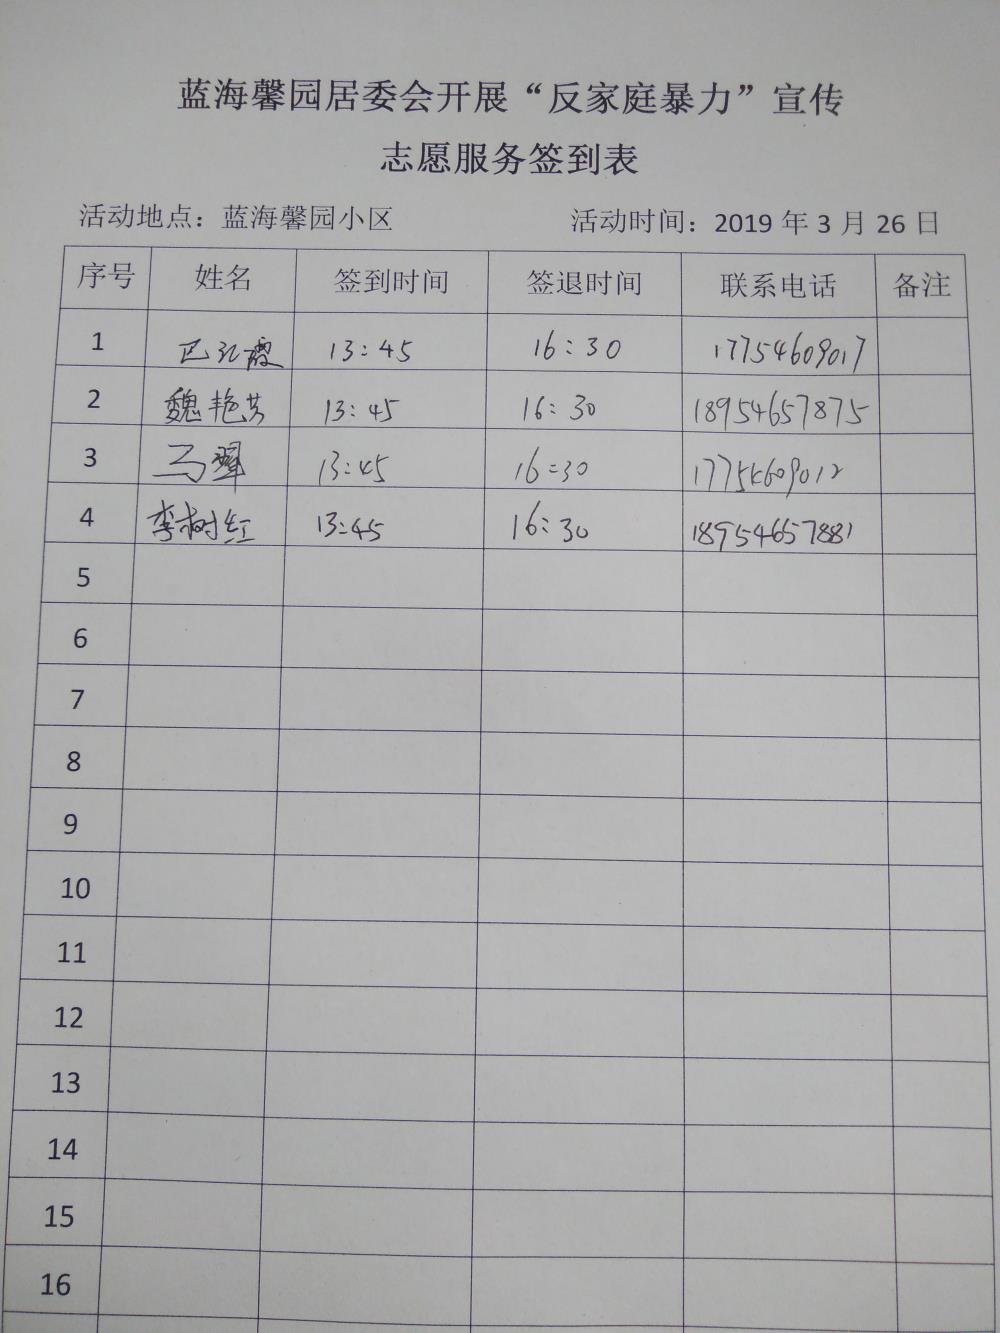 蓝海馨园居委会开展“反家庭暴力”宣传
志愿服务签到表
活动地点：蓝海馨园小区 活动时间：2019 年 3 月 26 日
序号 姓名 签到时间 签退时间 联系电话 备注
1 13:45 16:30 17754609017
2 魏艳芳 13:45 16:30 18954657875
3 13:45 16:30 17754609012
4 李树红 13:45 16:30 18954657881
5
6
7
8
9
10
11
12
13
14
15
16